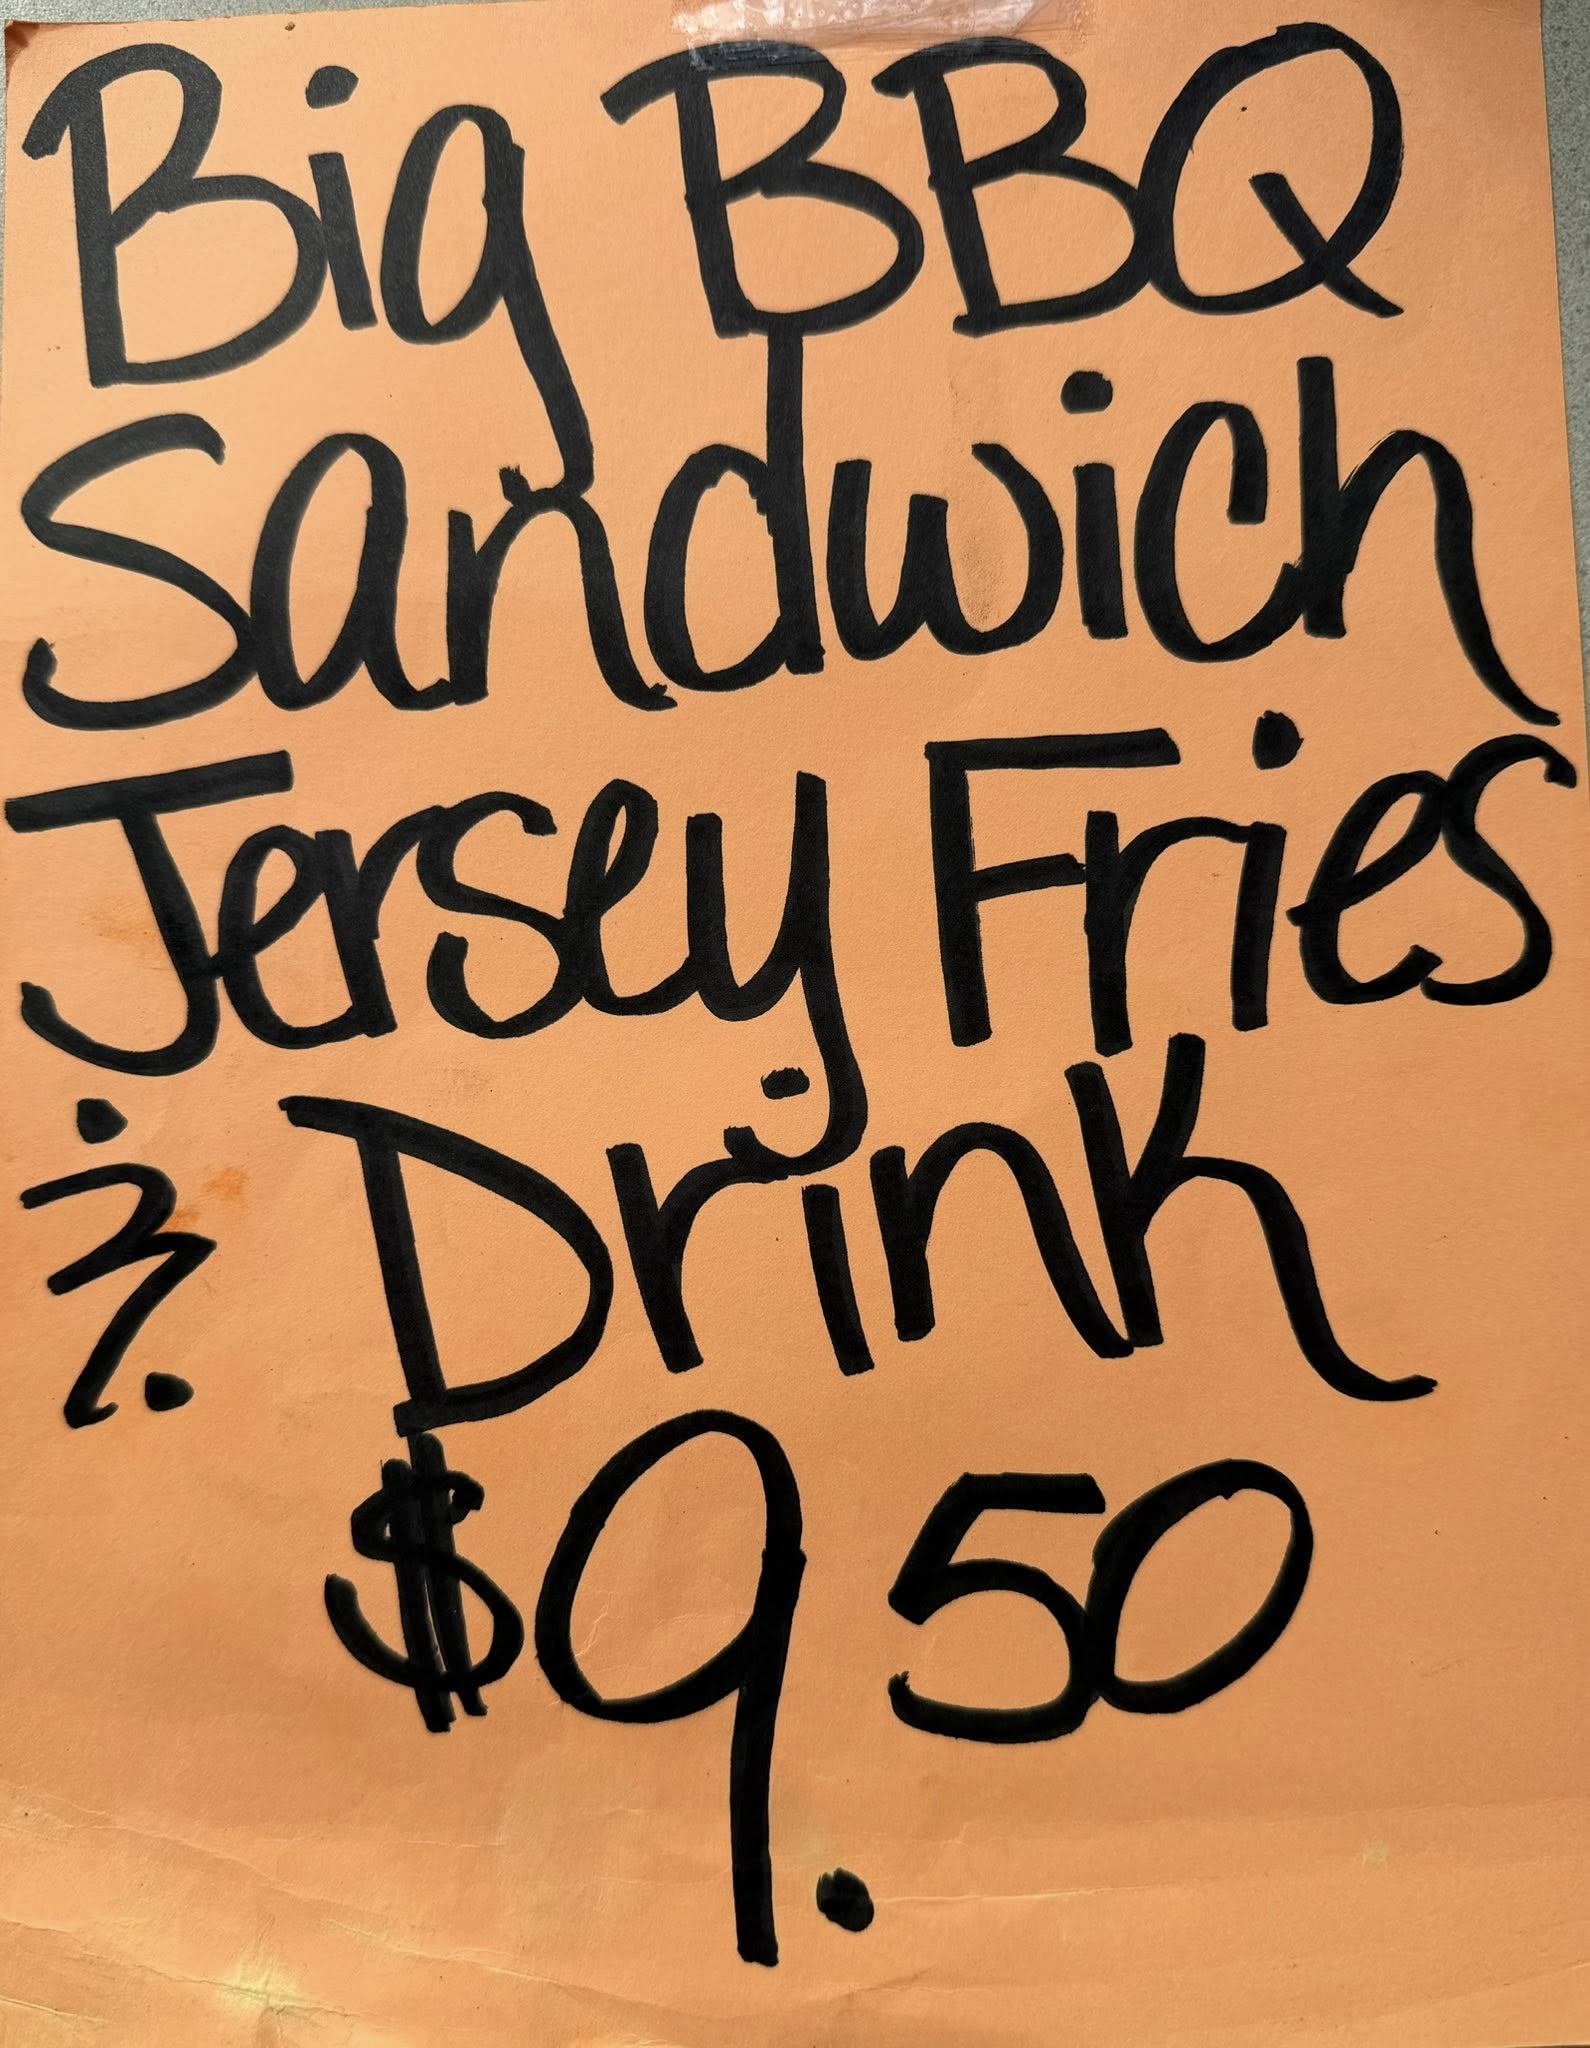 Big BBQ
Sandwich
Jersey Fries
& Drink
$9.50